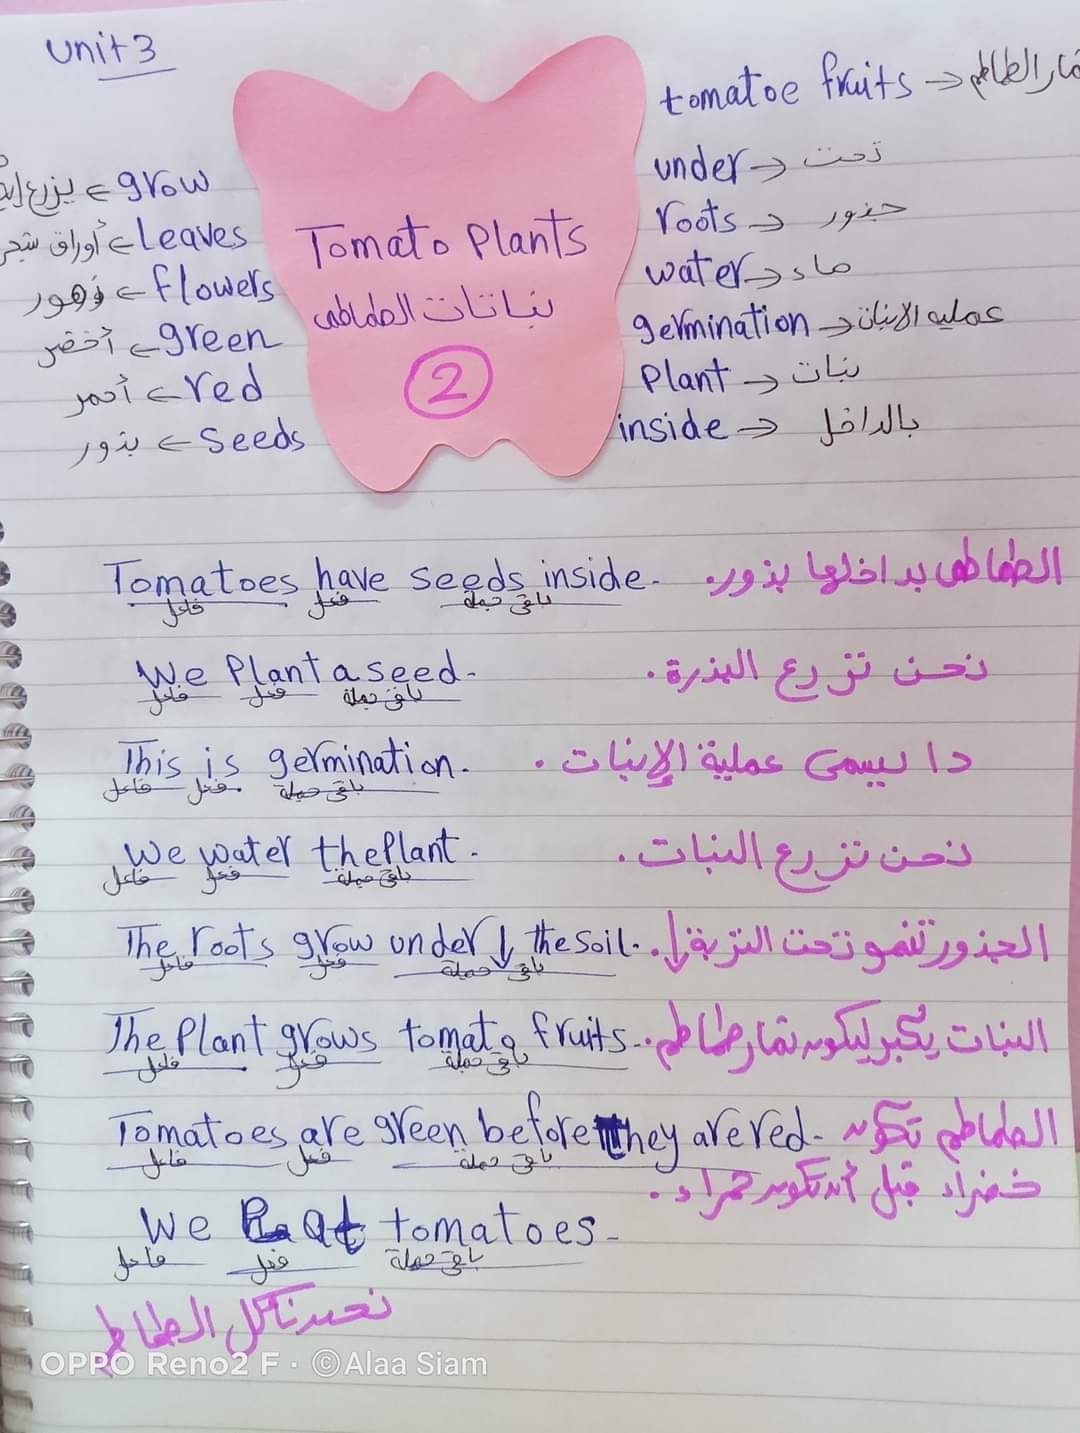 Unit 3
Tomato Plants
نباتات الطماطم
2
يزرع ← grow
أوراق شجر ← Leaves
زهور ← flowers
أخضر ← green
أحمر ← red
بذور ← Seeds
tomatoe fruits → ثمار الطماطم
under → تحت
roots → جذور
water → ماء
germination → عملية الانبات
Plant → نبات
inside → بالداخل
Tomatoes have seeds inside. الطماطم بداخلها بذور.
فاعل فعل باقى جملة
We Plant a seed. نحن نزرع البذرة.
فاعل فعل باقى جملة
This is germination. دا بيسمى عملية الإنبات.
فاعل فعل باقى جملة
We water the Plant. نحن نزرع النبات.
فاعل فعل باقى جملة
The roots grow under ↓ the soil. الجذور تنمو تحت التربة ↓.
فاعل فعل باقى جملة
The Plant grows tomato fruits. النبات يكبر ليكون ثمار طماطم.
فاعل فعل باقى جملة
Tomatoes are green before they are red. الطماطم تكون
فاعل فعل باقى جملة
خضراء قبل أن تكون حمراء.
We eat tomatoes.
فاعل فعل باقى جملة
نحن نأكل الطماطم
OPPO Reno2 F · ©Alaa Siam